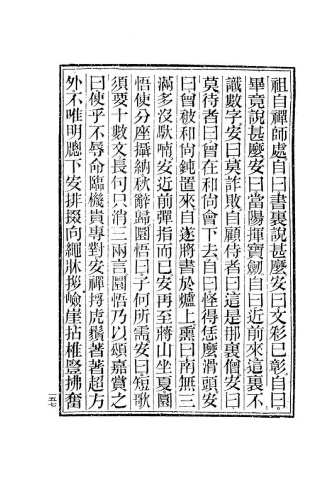 祖自禪師處自曰書裏說甚麼安曰文彩已彰自曰
畢竟說甚麼安曰當陽揮寶劒自曰近前來這裏不
識數字安曰莫詐敗自顧侍者曰這是那裏僧安曰
莫待者曰曾在和尚會下去自曰怪得恁麼滑頭安
曰曾被和尚鈍置來自遂將書於爐上熏曰南無三
滿多沒馱喃安近前彈指而已安再至蔣山坐夏圜
悟使分座攝納秋辭歸圜悟曰子何所需安曰短歌
須要十數丈長句只消三兩言圜悟乃以頌嘉賞之
曰使乎不辱命臨機貴專對安禪捋虎鬚著著超方
外不唯明牕下安排掇向繩牀拶嶮崖拈椎豎拂奮
五七